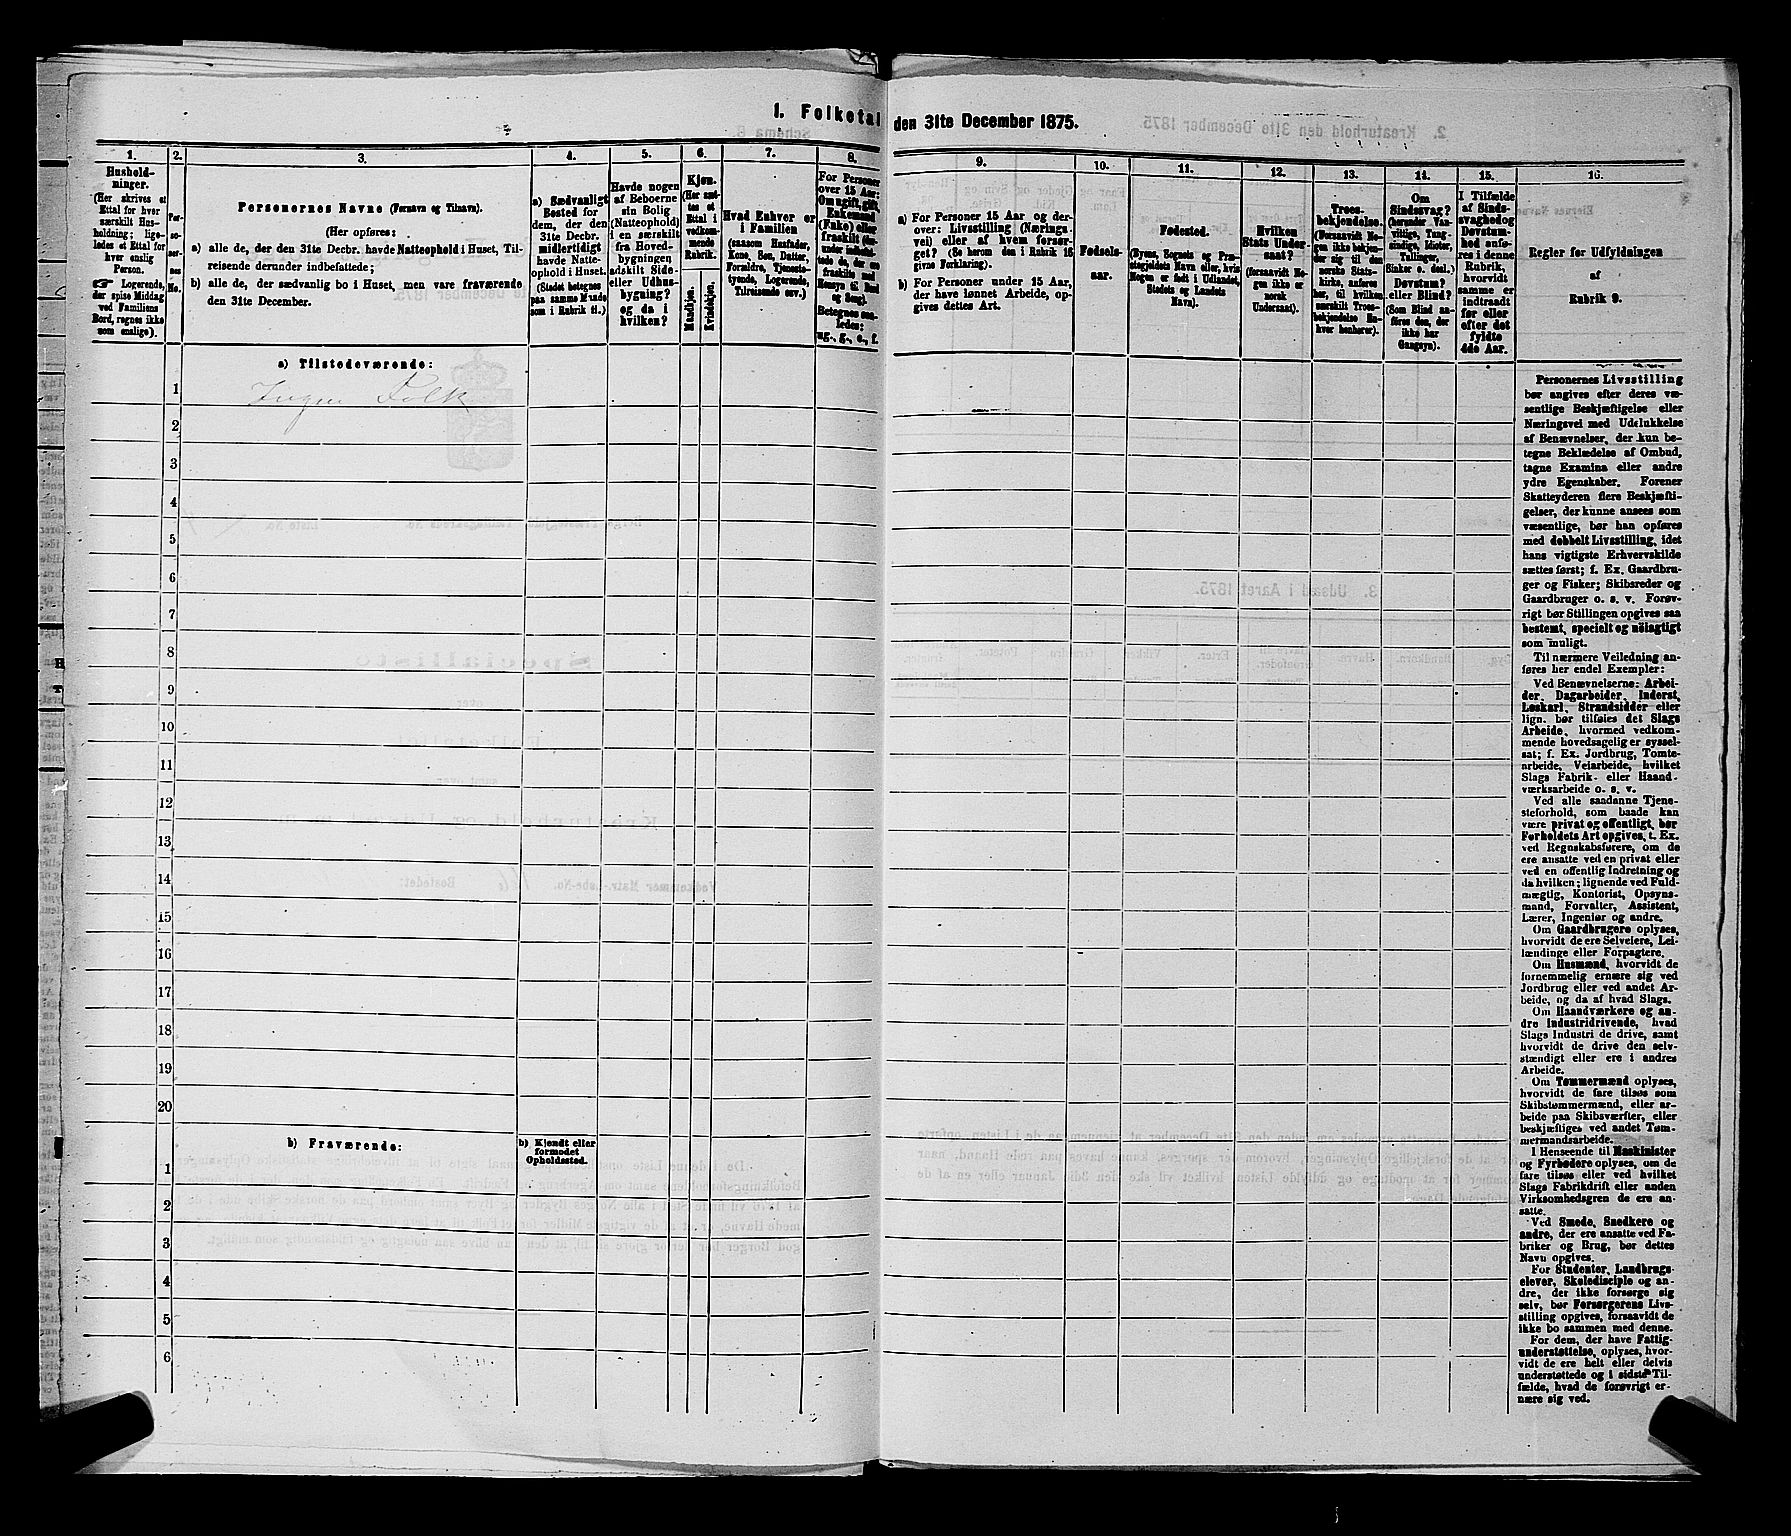 1. Folketal den 31te December 1875.
1.
Hushold-
ninger.
(Her skrives et
Ettal for hver
særskilt Hus-
holdning; lige-
ledes et Ettal for
hver enslig
Person.
☛ Logerende,
der spise Middag
ved Familiens
Bord, regnes ikke
som enslige).
2.
Per-
so-
ner-
nes
No.
3.
Personernes Navne (Fornavn og Tilnavn).
(Her opføres:
a) alle de, der den 31te Decbr. havde Natteophold i Huset, Til-
reisende derunder indbefattede;
b) alle de, der sædvanlig bo i Huset, men vare fraværende
den 31te December.
4.
a) Sædvanligt
Bosted for
dem, der den
31te Decbr.
midlertidigt
havde Natte-
ophold i Huset.
(Stedet betegnes
paa samme Maade
som i Rubrik 11.)
5.
Havde nogen
af Beboerne
sin Bolig
(Natteophold)
i en særskilt
fra Hoved-
bygningen
adskilt Side-
eller Udhus-
bygning?
og da i
hvilken?
6.
Kjøn.
(Her sæt-
tes et
Ettal i
vedkom-
mende
Rubrik.
Mandkjøn.
Kvindekjøn.
7.
Hvad Enhver er
i Familien
(saasom Husfader,
Kone, Søn, Datter,
Forældre, Tjeneste-
tyende, Logerende,
Tilreisende osv.)
8.
For Personer
over 15 Aar:
Om ugift, gift,
Enkemand
(Enke) eller
fraskilt (der-
under indbefat-
tede de, der ere
fraskilte med
Hensyn til Bord
og Seng).
Betegnes saa-
ledes:
ug., g., e., f.
9.
a) For Personer 15 Aar og der-
over: Livsstilling (Nærings-
vei) eller af hvem forsør-
get? (Se herom den i Rubrik 16
givne Forklaring).
b) For Personer under 15 Aar,
der have lønnet Arbeide, op-
gives dettes Art.
10.
Fødsels-
aar.
11.
Fødested.
(Byens, Sognets og Præ-
stegjeldets Navn eller, hvis
Nogen er født i Udlandet,
Stedets og Landets
Navn).
12.
Hvilken
Stats Under-
saat?
(forsaavidt No-
gen ikke er
norsk
Undersaat).
13.
Troes-
bekjendelse.
(Forsaavidt No-
gen ikke bekjen-
der sig til den
norske Stats-
kirke, anføres
her, til hvilken
særskilt Troes-
bekjendelse En-
hver henhører).
14.
Om
Sindssvag?
(herunder Van-
vittige, Tung-
sindige, Idioter,
Tullinger,
Sinker o. desl.)
Døvstum?
eller Blind?
(Som Blind an-
føres den, der
ikke har
Gangsyn).
15.
I Tilfælde
af Sinds-
svaghed og
Døvstum-
hed anfø-
res i denne
Rubrik,
hvorvidt
samme er
indtraadt
før eller
efter det
fyldte
4de Aar.
16.
Regler for Udfyldningen
af
Rubrik 9.
a) Tilstedeværende:
1 Ingen Folk
2
3
4
5
6
7
8
9
10
11
12
13
14
15
16
17
18
19
20
b) Fraværende:
b) Kjendt eller
formodet
Opholdssted.
1
2
3
4
5
6
Personernes Livsstilling
bør angives efter deres væ-
sentlige Beskjæftigelse eller
Næringsvei med Udelukkelse
af Benævnelser, der kun be-
tegne Beklædelse af Ombud,
tagne Examina eller andre
ydre Egenskaber. Forener
Skatteyderen flere Beskjæfti-
gelser, der kunne ansees som
væsentlige, bør han opføres
med dobbelt Livsstilling, idet
hans vigtigste Erhvervskilde
sættes først; f. Ex. Gaardbru-
ger og Fisker; Skibsreder og
Gaardbruger o. s. v. Forøv-
rigt bør Stillingen opgives saa
bestemt, specielt og nöiagtigt
som muligt.
Til nærmere Veiledning an-
føres her endel Exempler:
Ved Benævnelserne: Arbei-
der, Dagarbeider, Inderst,
Løskarl, Strandsidder eller
lign. bør tilføies det Slags
Arbeide, hvormed vedkom-
mende hovedsagelig er syssel-
sat; f. Ex. Jordbrug, Tomte-
arbeide, Veiarbeide, hvilket
Slags Fabrik- eller Haand-
værksarbeide o. s. v.
Ved alle saadanne Tjene-
steforhold, som baade kan
være privat og offentligt, bør
Forholdets Art opgives, t. Ex.
ved Regnskabsførere, om de
ere ansatte ved en privat eller
ved en offentlig Indretning og
da hvilken; lignende ved Fuld-
mægtig, Kontorist, Opsyns-
mand, Forvalter, Assistent,
Lærer, Ingeniør og andre.
Om Gaardbrugere oplyses,
hvorvidt de ere Selveiere, Lei-
lændinge eller Forpagtere.
Om Husmænd, hvorvidt de
fornemmelig ernære sig ved
Jordbrug eller ved andet Ar-
beide, og da af hvad Slags.
Om Haandværkere og an-
dre Industridrivende, hvad
Slags Industri de drive, samt
hvorvidt de drive den selv-
stændigt eller ere i andres
Arbeide.
Om Tømmermænd oplyses,
hvorvidt de fare tilsøs som
Skibstømmermænd, eller ar-
beide paa Skibsværfter, eller
beskjæftiges ved andet Tøm-
mermandsarbeide.
I Henseende til Maskinister
og Fyrbødere oplyses, om de
fare tilsøs eller ved hvilket
Slags Fabrikdrift eller anden
Virksomhedsgren de ere an-
satte.
Ved Smede, Snedkere og
andre, der ere ansatte ved Fa-
briker og Brug, bør dettes
Navn opgives.
For Studenter, Landbrugs-
elever, Skoledisciple og an-
dre, der ikke forsørge sig
selv, bør Forsørgerens Livs-
stilling opgives, forsaavidt de
ikke bo sammen med denne.
For dem, der have Fattig-
understøttelse, oplyses, hvor-
vidt de ere helt eller delvis
understøttede og i sidste Til-
fælde, hvad de forøvrigt er-
nære sig ved.